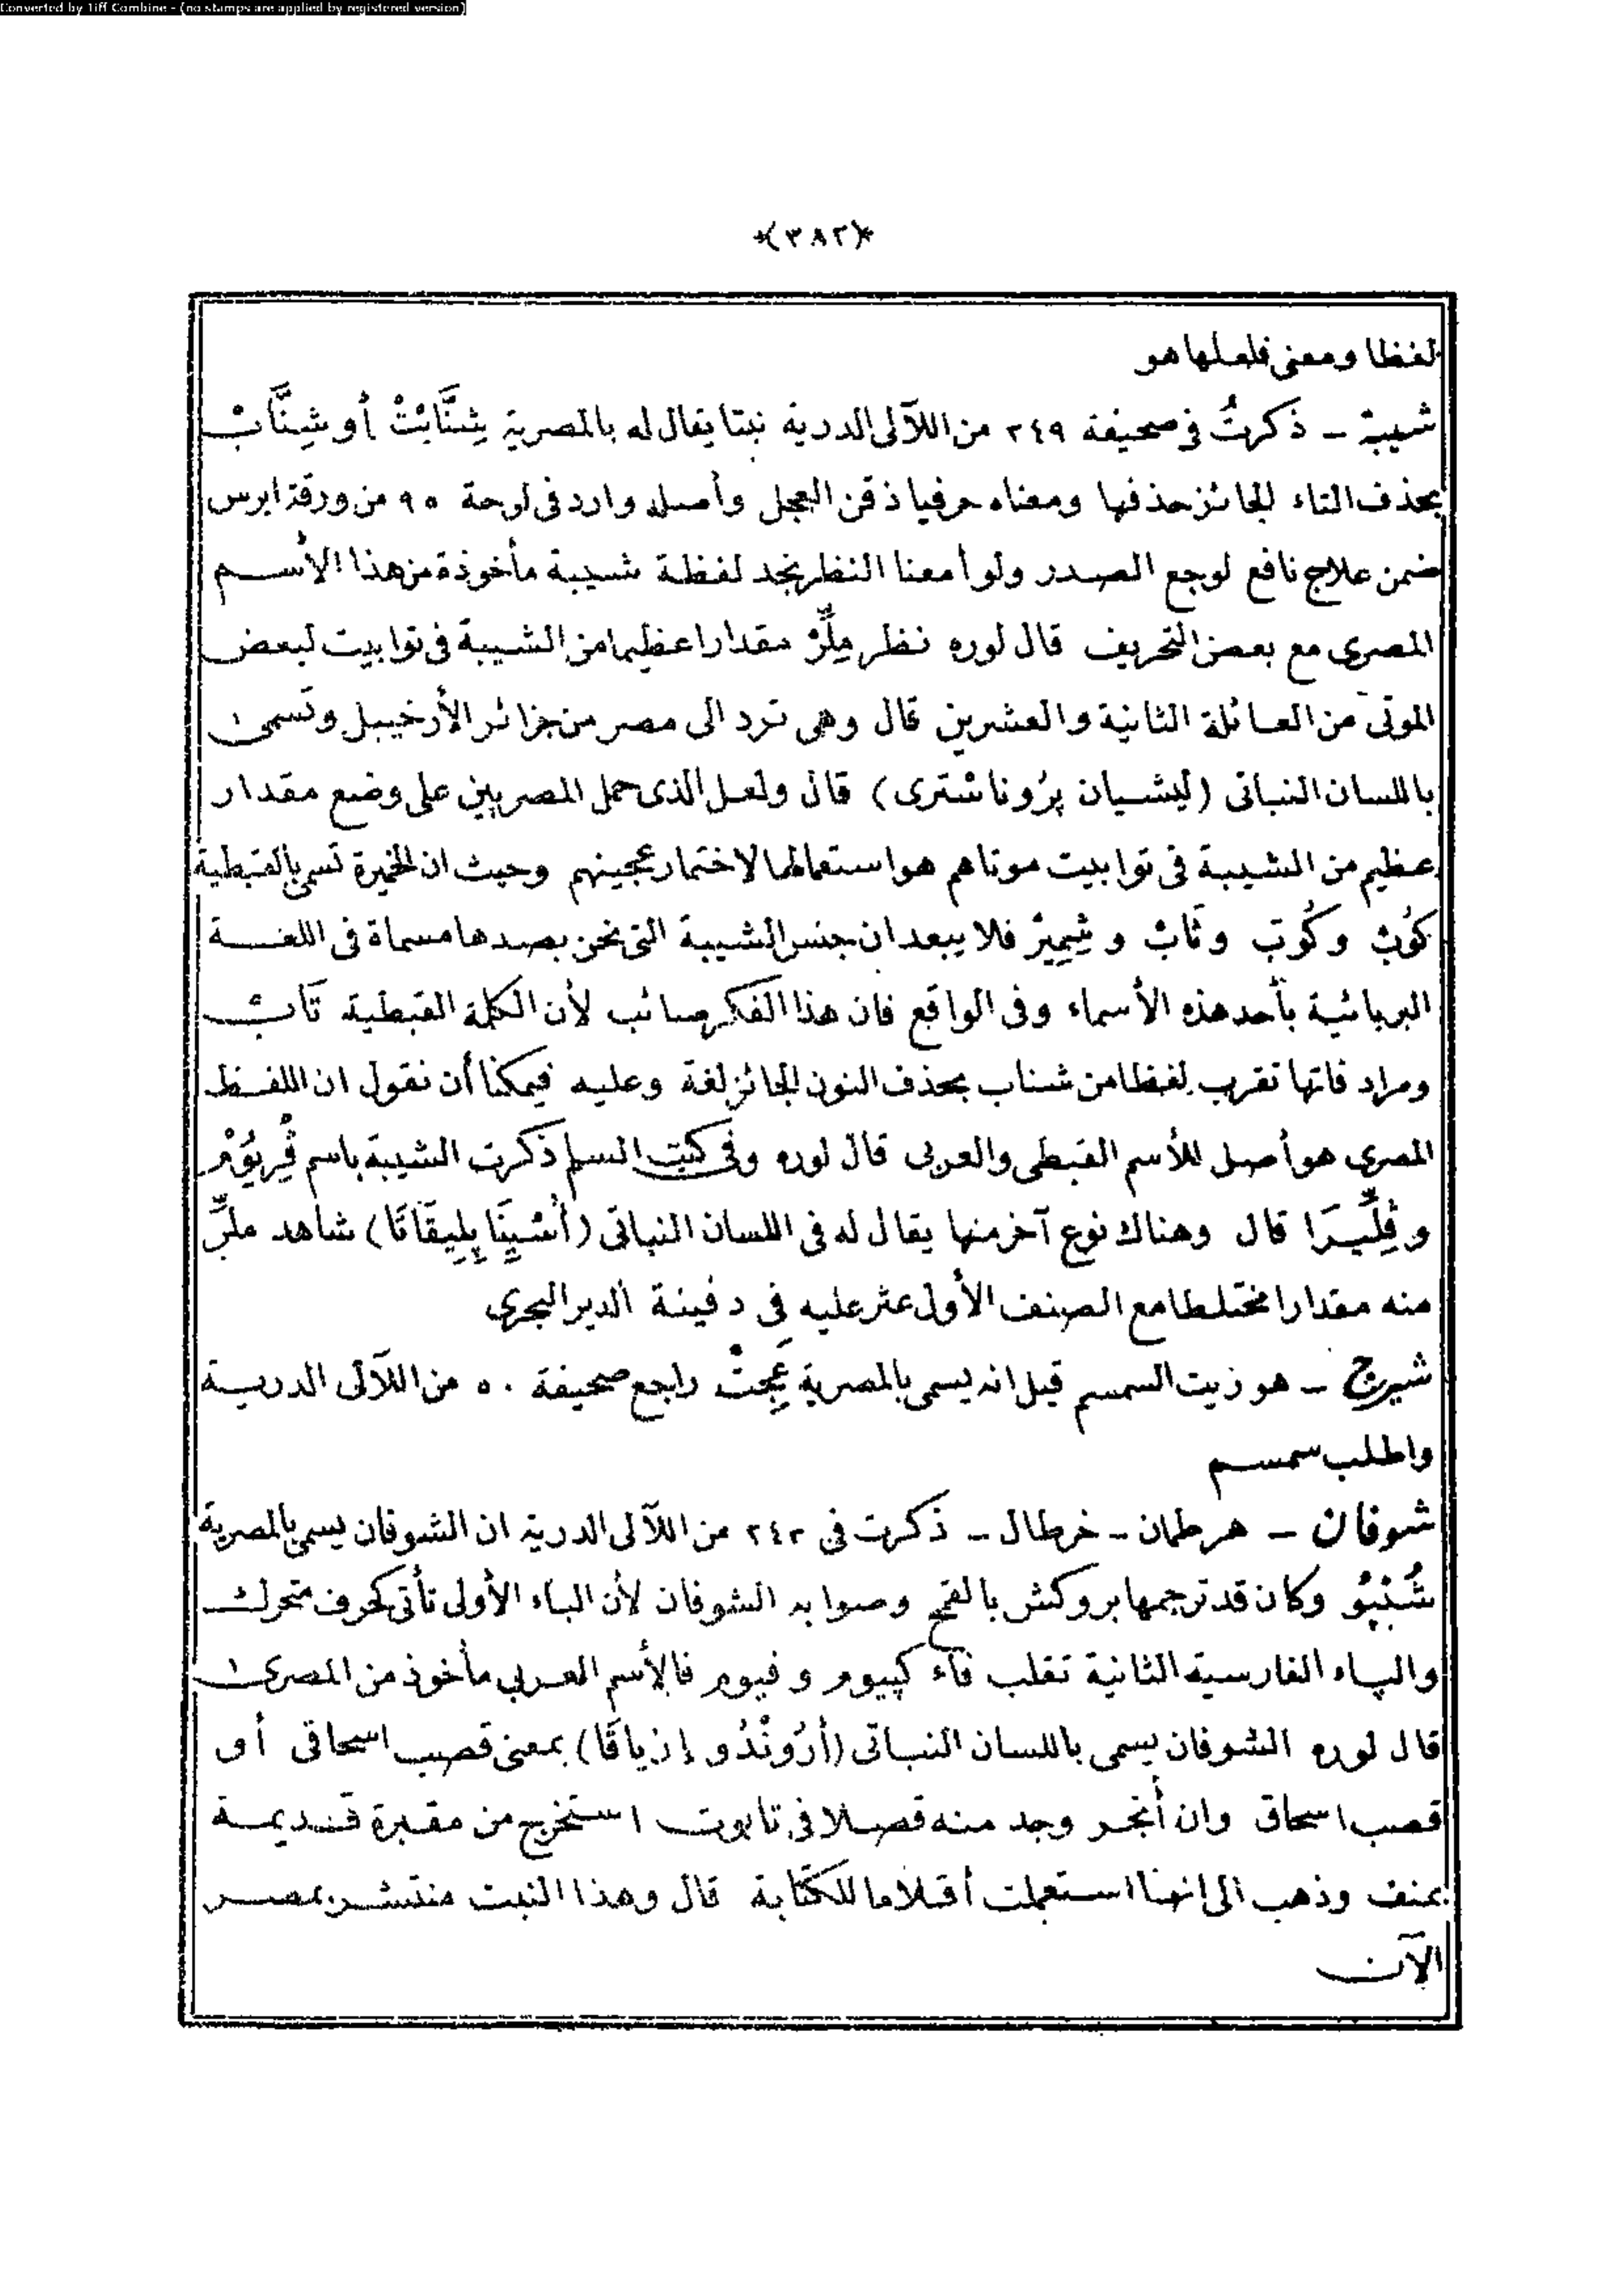 Converted by Tiff Combine - (no stamps are applied by registered version)
*(٣٨٢)*
لفظا ومعنى فلعلها هو
شيبة – ذكرتُ فى صحيفة ٢٤٩ من اللآلى الدرية نبتا يقال له بالمصرية شِنَّابَتْ أو شِنَّابْ
بحذف التاء الجائز حذفها ومعناه حرفيا ذقن العجل وأصله وارد فى لوحة ٩٥ من ورقة ابرس
ضمن علاج نافع لوجع الصدر ولو أمعنا النظر نجد لفظة شيبة مأخوذة من هذا الأسم
المصرى مع بعض التحريف قال لوره نظر مِلِّرْ مقدارا عظيما من الشيبة فى توابيت لبعض
الموتى من العائلة الثانية والعشرين قال وهى ترد الى مصر من جزائر الأرخيبل وتسمى
باللسان النباتى (ليشيان برُوناسْترى) قال ولعل الذى حمل المصريين على وضع مقدار
عظيم من الشيبة فى توابيت موتاهم هو استعمالها لاختمار عجينهم وحيث ان الخميرة تسمى بالقبطية
كوُبْ وكُوبَ وثَابْ و شِمِيرْ فلا يبعد ان جنس الشيبة التى نحن بصددها مسماة فى اللغة
البربائية بأحد هذه الأسماء وفى الواقع فان هذا الفكر صائب لأن الكلمة القبطية تَابْ
ومراد فاتها تقرب لفظا من شناب بحذف النون الجائز لغة وعليه فيمكنا أن نقول ان اللفظ
المصرى هو أصل للأسم القبطى والعربى قال لوره وفى كتب السلم ذكرت الشيبة باسم فْرِيُوْمْ
وفِلِّيرَا قال وهناك نوع آخر منها يقال له فى اللسان النباتى (أُسْنِيَا پِلِيقَاتَا) شاهد ملرِّ
منه مقدارا مختلطا مع الصنف الأول عثر عليه فى دفينة الدير البحرى
شيرج – هو زيت السمسم قيل انه يسمى بالمصرية عَجِتْ راجع صحيفة ٥٠ من اللآلى الدرية
واطلب سمسم
شوفان – هرطمان – خرطال – ذكرت فى ٢٤٣ من اللآلى الدرية ان الشوفان يسمى بالمصرية
شُبْپُو وكان قد ترجمها بروكش بالقمح وصوابه الشوفان لأن الباء الأولى تأتى كحرف متحرك
والپاء الفارسية الثانية تقلب فآء كپيوم وفيوم فالأسم العربى مأخوذ من المصرى
قال لوره الشوفان يسمى باللسان النباتى (أَرُوَنْدُو إزياقَا) بمعنى قصب اسحاقى أو
قصب اسحاق وان أنجر وجد منه قصلا فى تابوت استخرج من مقبرة قديمة
بمنف وذهب الى انها استعملت أقلاما للكتابة قال وهذا النبت منتشر بمصر
الآن